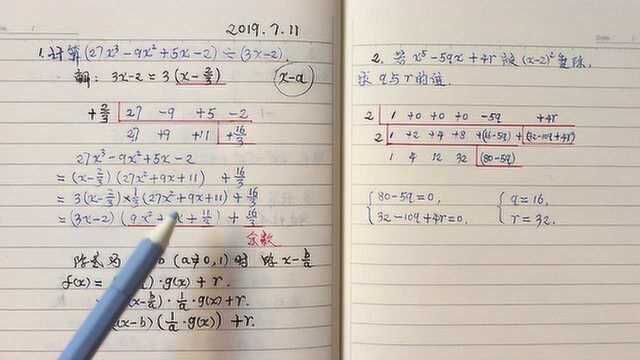 2019.7.11
1. 计算 (27x³-9x²+5x-2)÷(3x-2).
解: 3x-2=3(x-2/3) (x-a)
+2/3 | 27 -9 +5 -2
27 +9 +11 +16/3
27x³-9x²+5x-2
=(x-2/3)(27x²+9x+11) +16/3
=3(x-2/3)×1/3(27x²+9x+11)+16/3
=(3x-2)(9x² x+11/3)+16/3
余数
除式为 b (a≠0,1)时 除 x-b/a
f(x)= )·g(x)+r.
(x-b/a)·1/a·g(x)+r.
(ax-b)(1/a·g(x))+r.
2. 若 x⁵-5qx+4r 被 (x-2)² 整除,
求 q与r的值.
2 | 1 +0 +0 +0 -5q +4r
2 | 1 +2 +4 +8 +(16-5q) +(32-10q+4r)
1 4 12 32 (80-5q)
{80-5q=0, {q=16,
{32-10q+4r=0. {r=32.